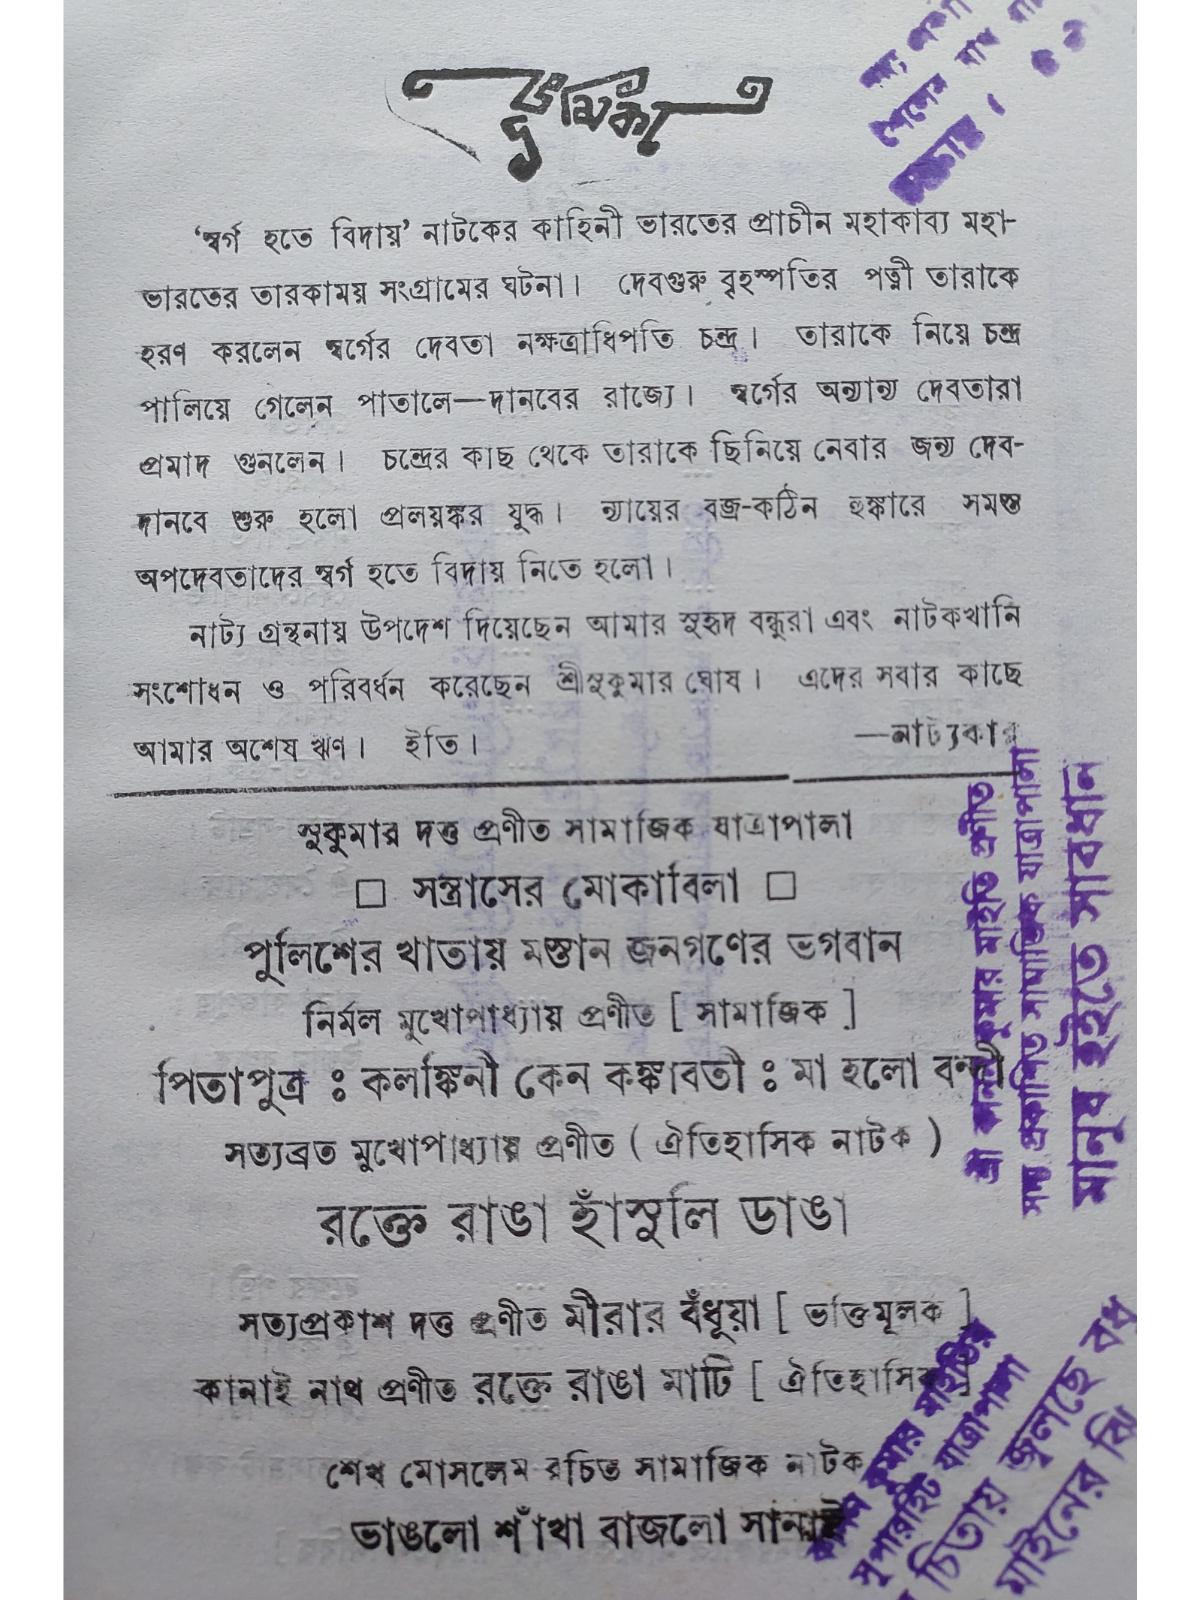 ভূমিকা
‘স্বর্গ হতে বিদায়’ নাটকের কাহিনী ভারতের প্রাচীন মহাকাব্য মহা-
ভারতের তারকাময় সংগ্রামের ঘটনা। দেবগুরু বৃহস্পতির পত্নী তারাকে
হরণ করলেন স্বর্গের দেবতা নক্ষত্রাধিপতি চন্দ্র। তারাকে নিয়ে চন্দ্র
পালিয়ে গেলেন পাতালে—দানবের রাজ্যে। স্বর্গের অন্যান্য দেবতারা
প্রমাদ গুনলেন। চন্দ্রের কাছ থেকে তারাকে ছিনিয়ে নেবার জন্য দেব-
দানবে শুরু হলো প্রলয়ঙ্কর যুদ্ধ। ন্যায়ের বজ্র-কঠিন হুঙ্কারে সমস্ত
অপদেবতাদের স্বর্গ হতে বিদায় নিতে হলো।
নাট্য গ্রন্থনায় উপদেশ দিয়েছেন আমার সুহৃদ বন্ধুরা এবং নাটকখানি
সংশোধন ও পরিবর্ধন করেছেন শ্রীসুকুমার ঘোষ। এদের সবার কাছে
আমার অশেষ ঋণ। ইতি।
—নাট্যকার
সুকুমার দত্ত প্রণীত সামাজিক যাত্রাপালা
□ সন্ত্রাসের মোকাবিলা □
পুলিশের খাতায় মস্তান জনগণের ভগবান
নির্মল মুখোপাধ্যায় প্রণীত [ সামাজিক ]
পিতাপুত্র : কলঙ্কিনী কেন কঙ্কাবতী : মা হলো বন্দী
সত্যব্রত মুখোপাধ্যায় প্রণীত ( ঐতিহাসিক নাটক )
রক্তে রাঙা হাঁসুলি ডাঙা
সত্যপ্রকাশ দত্ত প্রণীত মীরার বঁধূয়া [ ভক্তিমূলক ]
কানাই নাথ প্রণীত রক্তে রাঙা মাটি [ ঐতিহাসিক ]
শেখ মোসলেম রচিত সামাজিক নাটক
ভাঙলো শাঁখা বাজলো সানাই
কুমার মাইতি প্রণীত
সদ্য প্রকাশিত সামাজিক যাত্রাপালা
মানুষ হইতে সাবধান
কুমার মাইতির
সুপারহিট যাত্রাপালা
চিতায় জ্বলছে বধূ
মাইনের ঝি